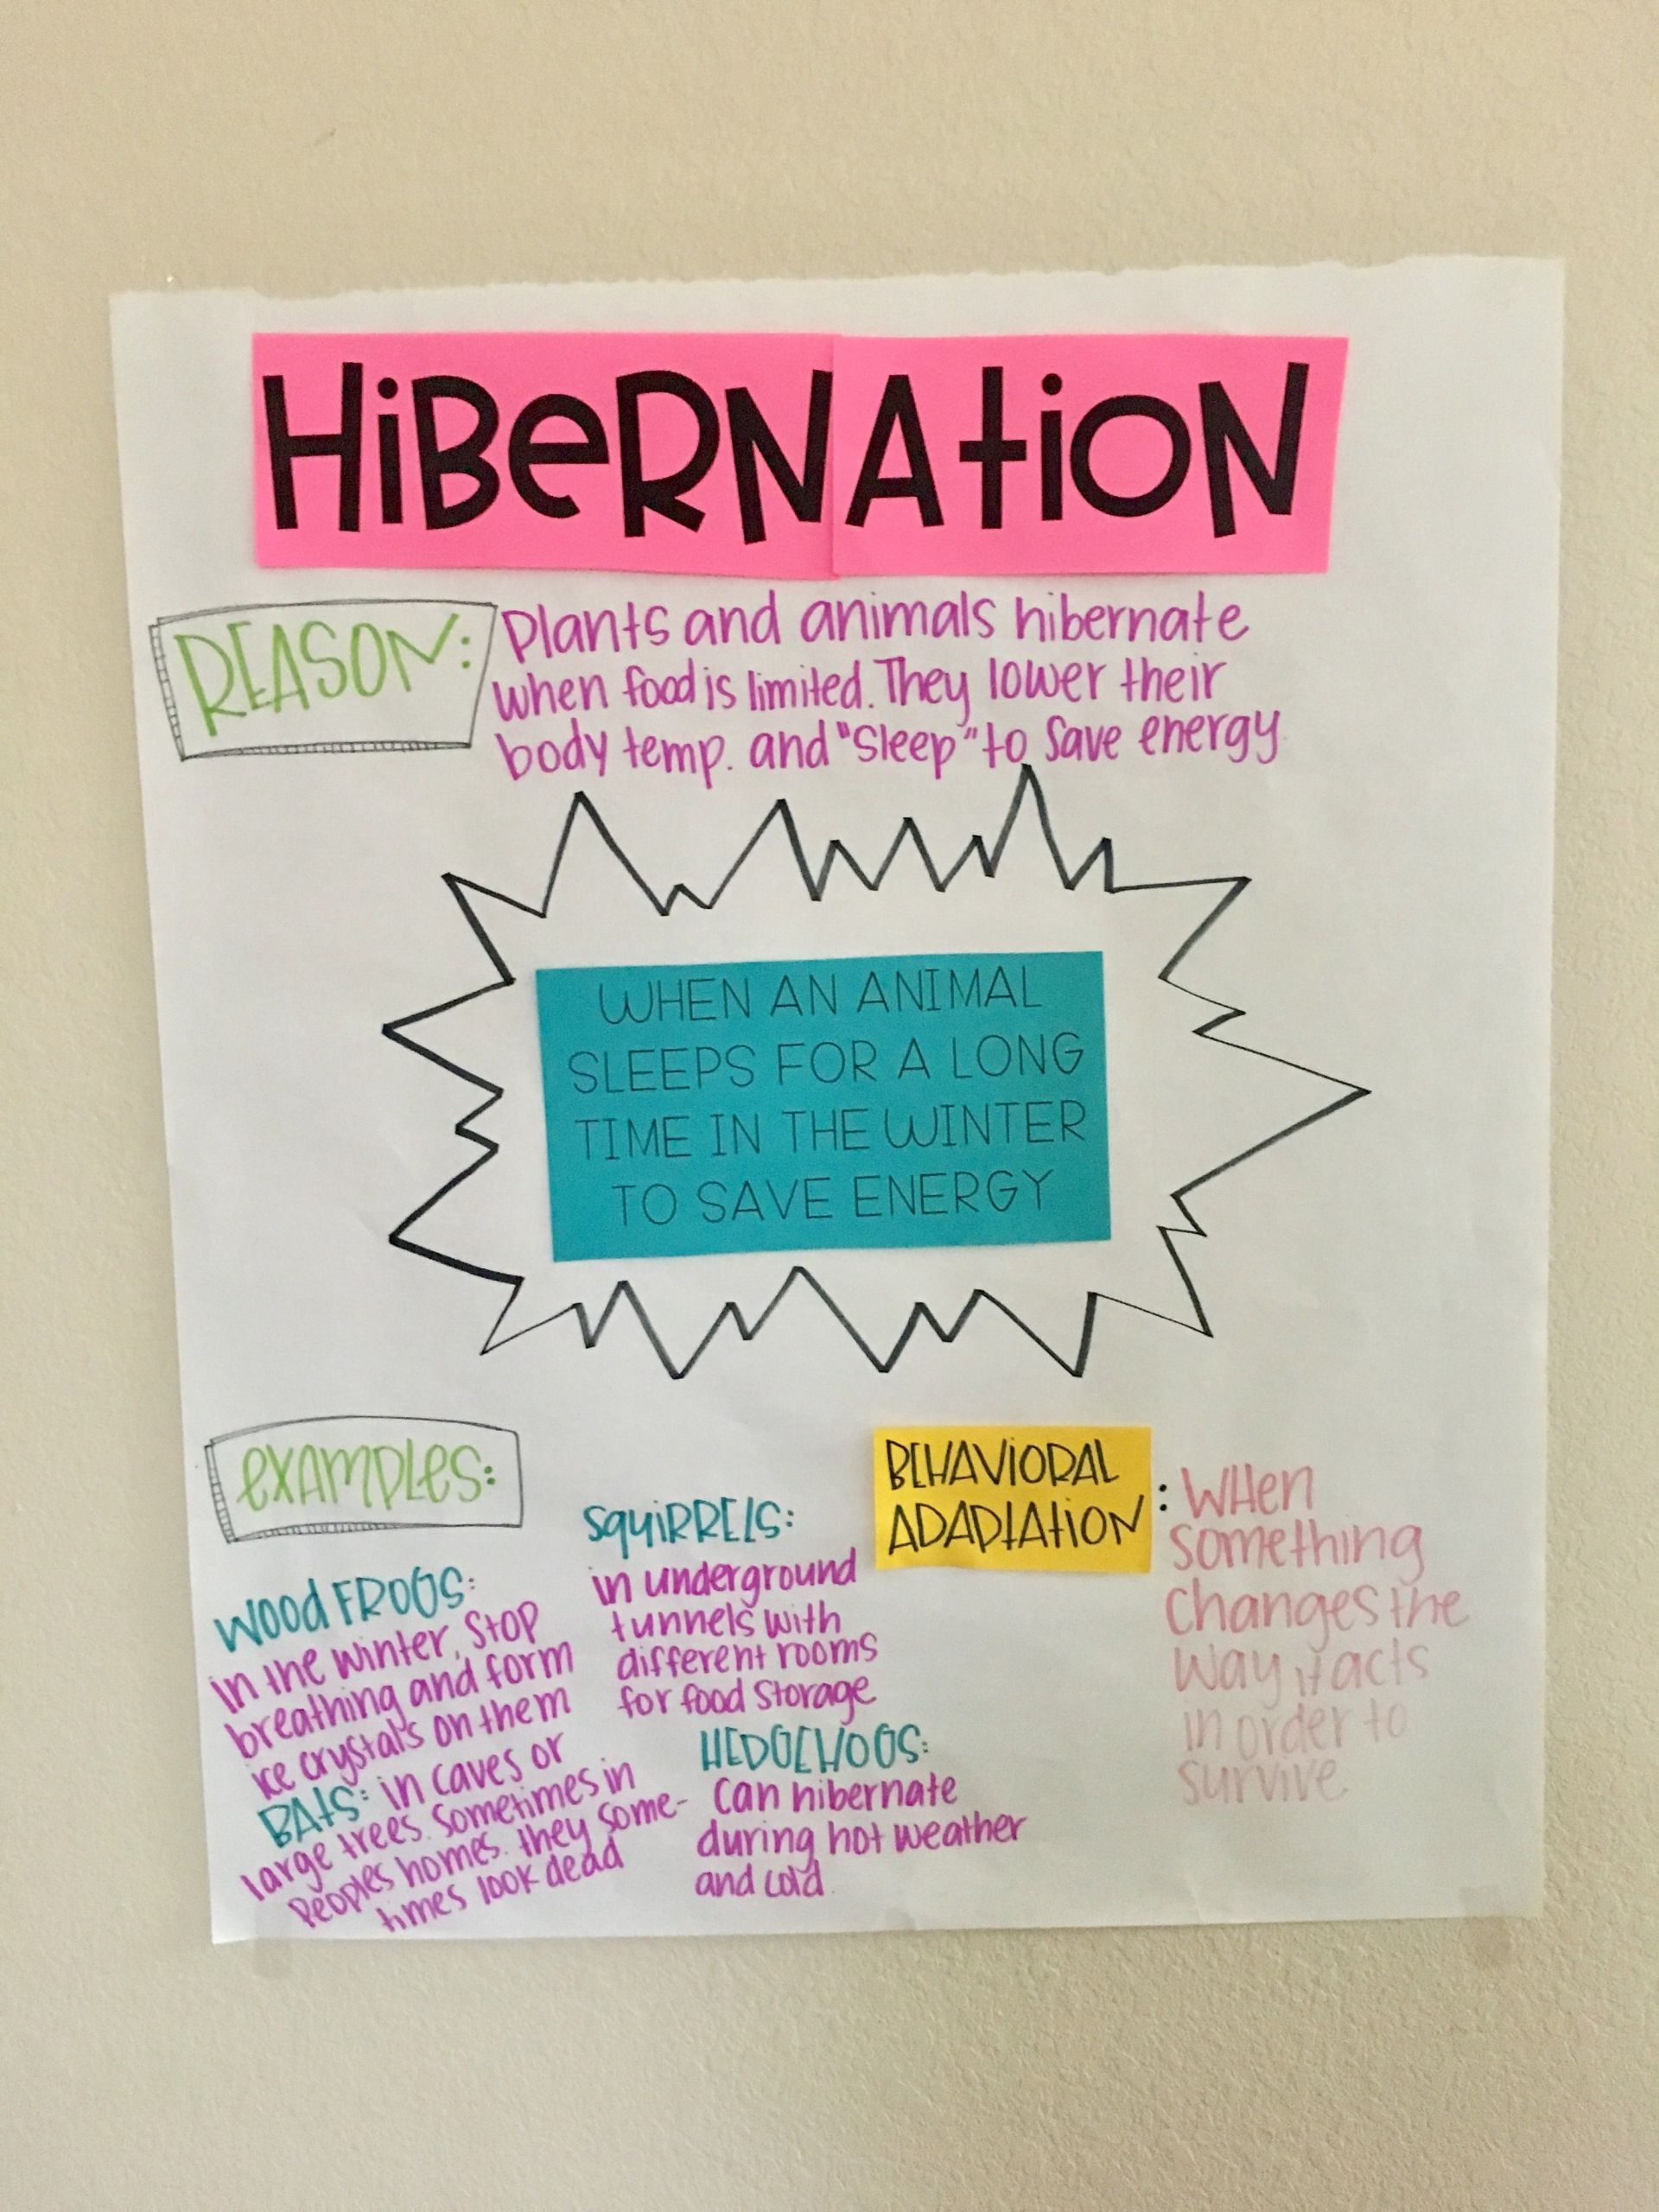 HiBeRNAtioN
REASON:
Plants and animals hibernate
when food is limited. They lower their
body temp. and "sleep" to save energy
WHEN AN ANIMAL
SLEEPS FOR A LONG
TIME IN THE WINTER
TO SAVE ENERGY
exAmPLes:
Wood FROGS:
in the winter, stop
breathing and form
ice crystals on them
BAtS: in caves or
large trees. Sometimes in
Peoples homes. they some-
times look dead
SquiRRElS:
in underground
tunnels with
different rooms
for food storage
HEDGEHOGS:
Can hibernate
during hot weather
and cold.
BEHAVioRAL
ADAPtAtioN
: WHen
something
changes the
way it acts
in order to
survive.